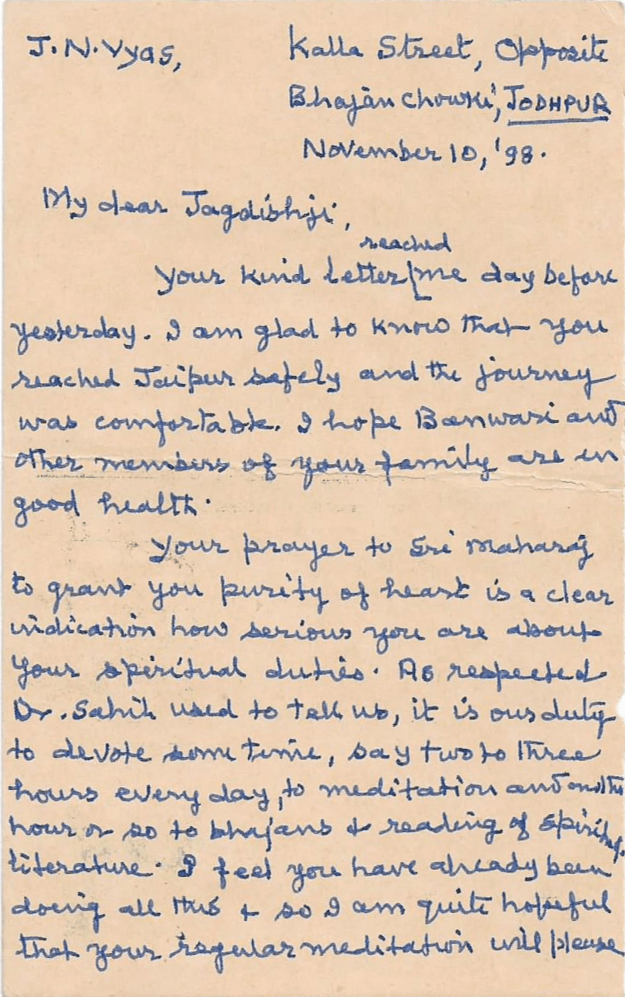 J.N. Vyas,
Kalla Street, Opposite
Bhajan Chowki, JODHPUR
November 10, '98.
My dear Jagdishji,
reached
Your kind letter me day before
yesterday. I am glad to know that you
reached Jaipur safely and the journey
was comfortable. I hope Banwari and
other members of your family are in
good health.
Your prayer to Sri Maharaj
to grant you purity of heart is a clear
indication how serious you are about
your spiritual duties. As respected
Dr. Sahib used to tell us, it is our duty
to devote some time, say two to three
hours every day, to meditation and another
hour or so to bhajans & reading of spiritual
literature. I feel you have already been
doing all this & so I am quite hopeful
that your regular meditation will please